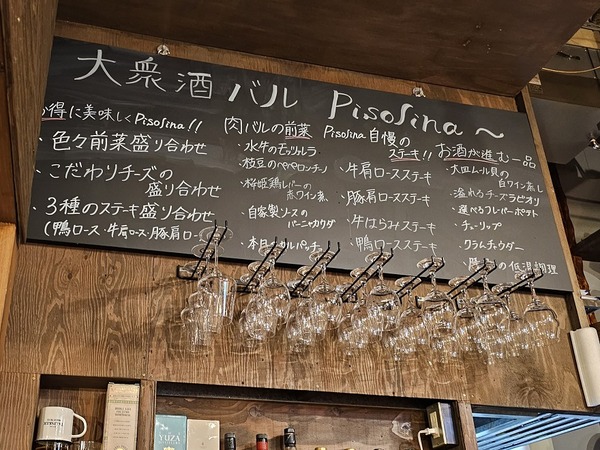 大衆酒バル Pisolina～
お得に美味しくPisolina!!
・色々前菜盛り合わせ
・こだわりチーズの
盛り合わせ
・3種のステーキ盛り合わせ
(鴨ロース・牛肩ロース・豚肩ロ
肉バルの前菜
・水牛のモッツァレラ
・枝豆のペペロンチーノ
レバーの
赤ワイン煮
・自家製ソースの
バーニャカウダ
・本日のカルパッチョ
Pisolina自慢の
ステーキ!!
・牛肩ロースステーキ
・豚肩ロースステーキ
・牛はらみステーキ
・鴨ロースステーキ
お酒が進む一品
・大皿ムール貝の
白ワイン蒸し
・溢れるチーズラビオリ
・選べるフレーバーポテト
・チューリップ
・クラムチャウダー
の低温調理
YUZU